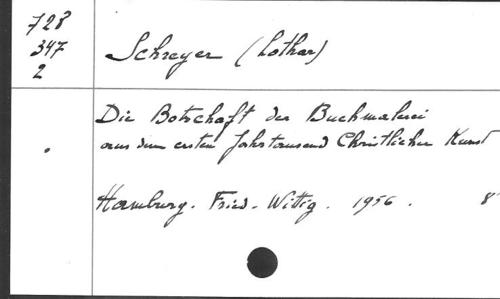 728
347
2
Schreyer (Lothar)
Die Botschaft der Buchmalerei
aus dem ersten Jahrtausend Christlicher Kunst
Hamburg. Fried. Wittig. 1956. 8°